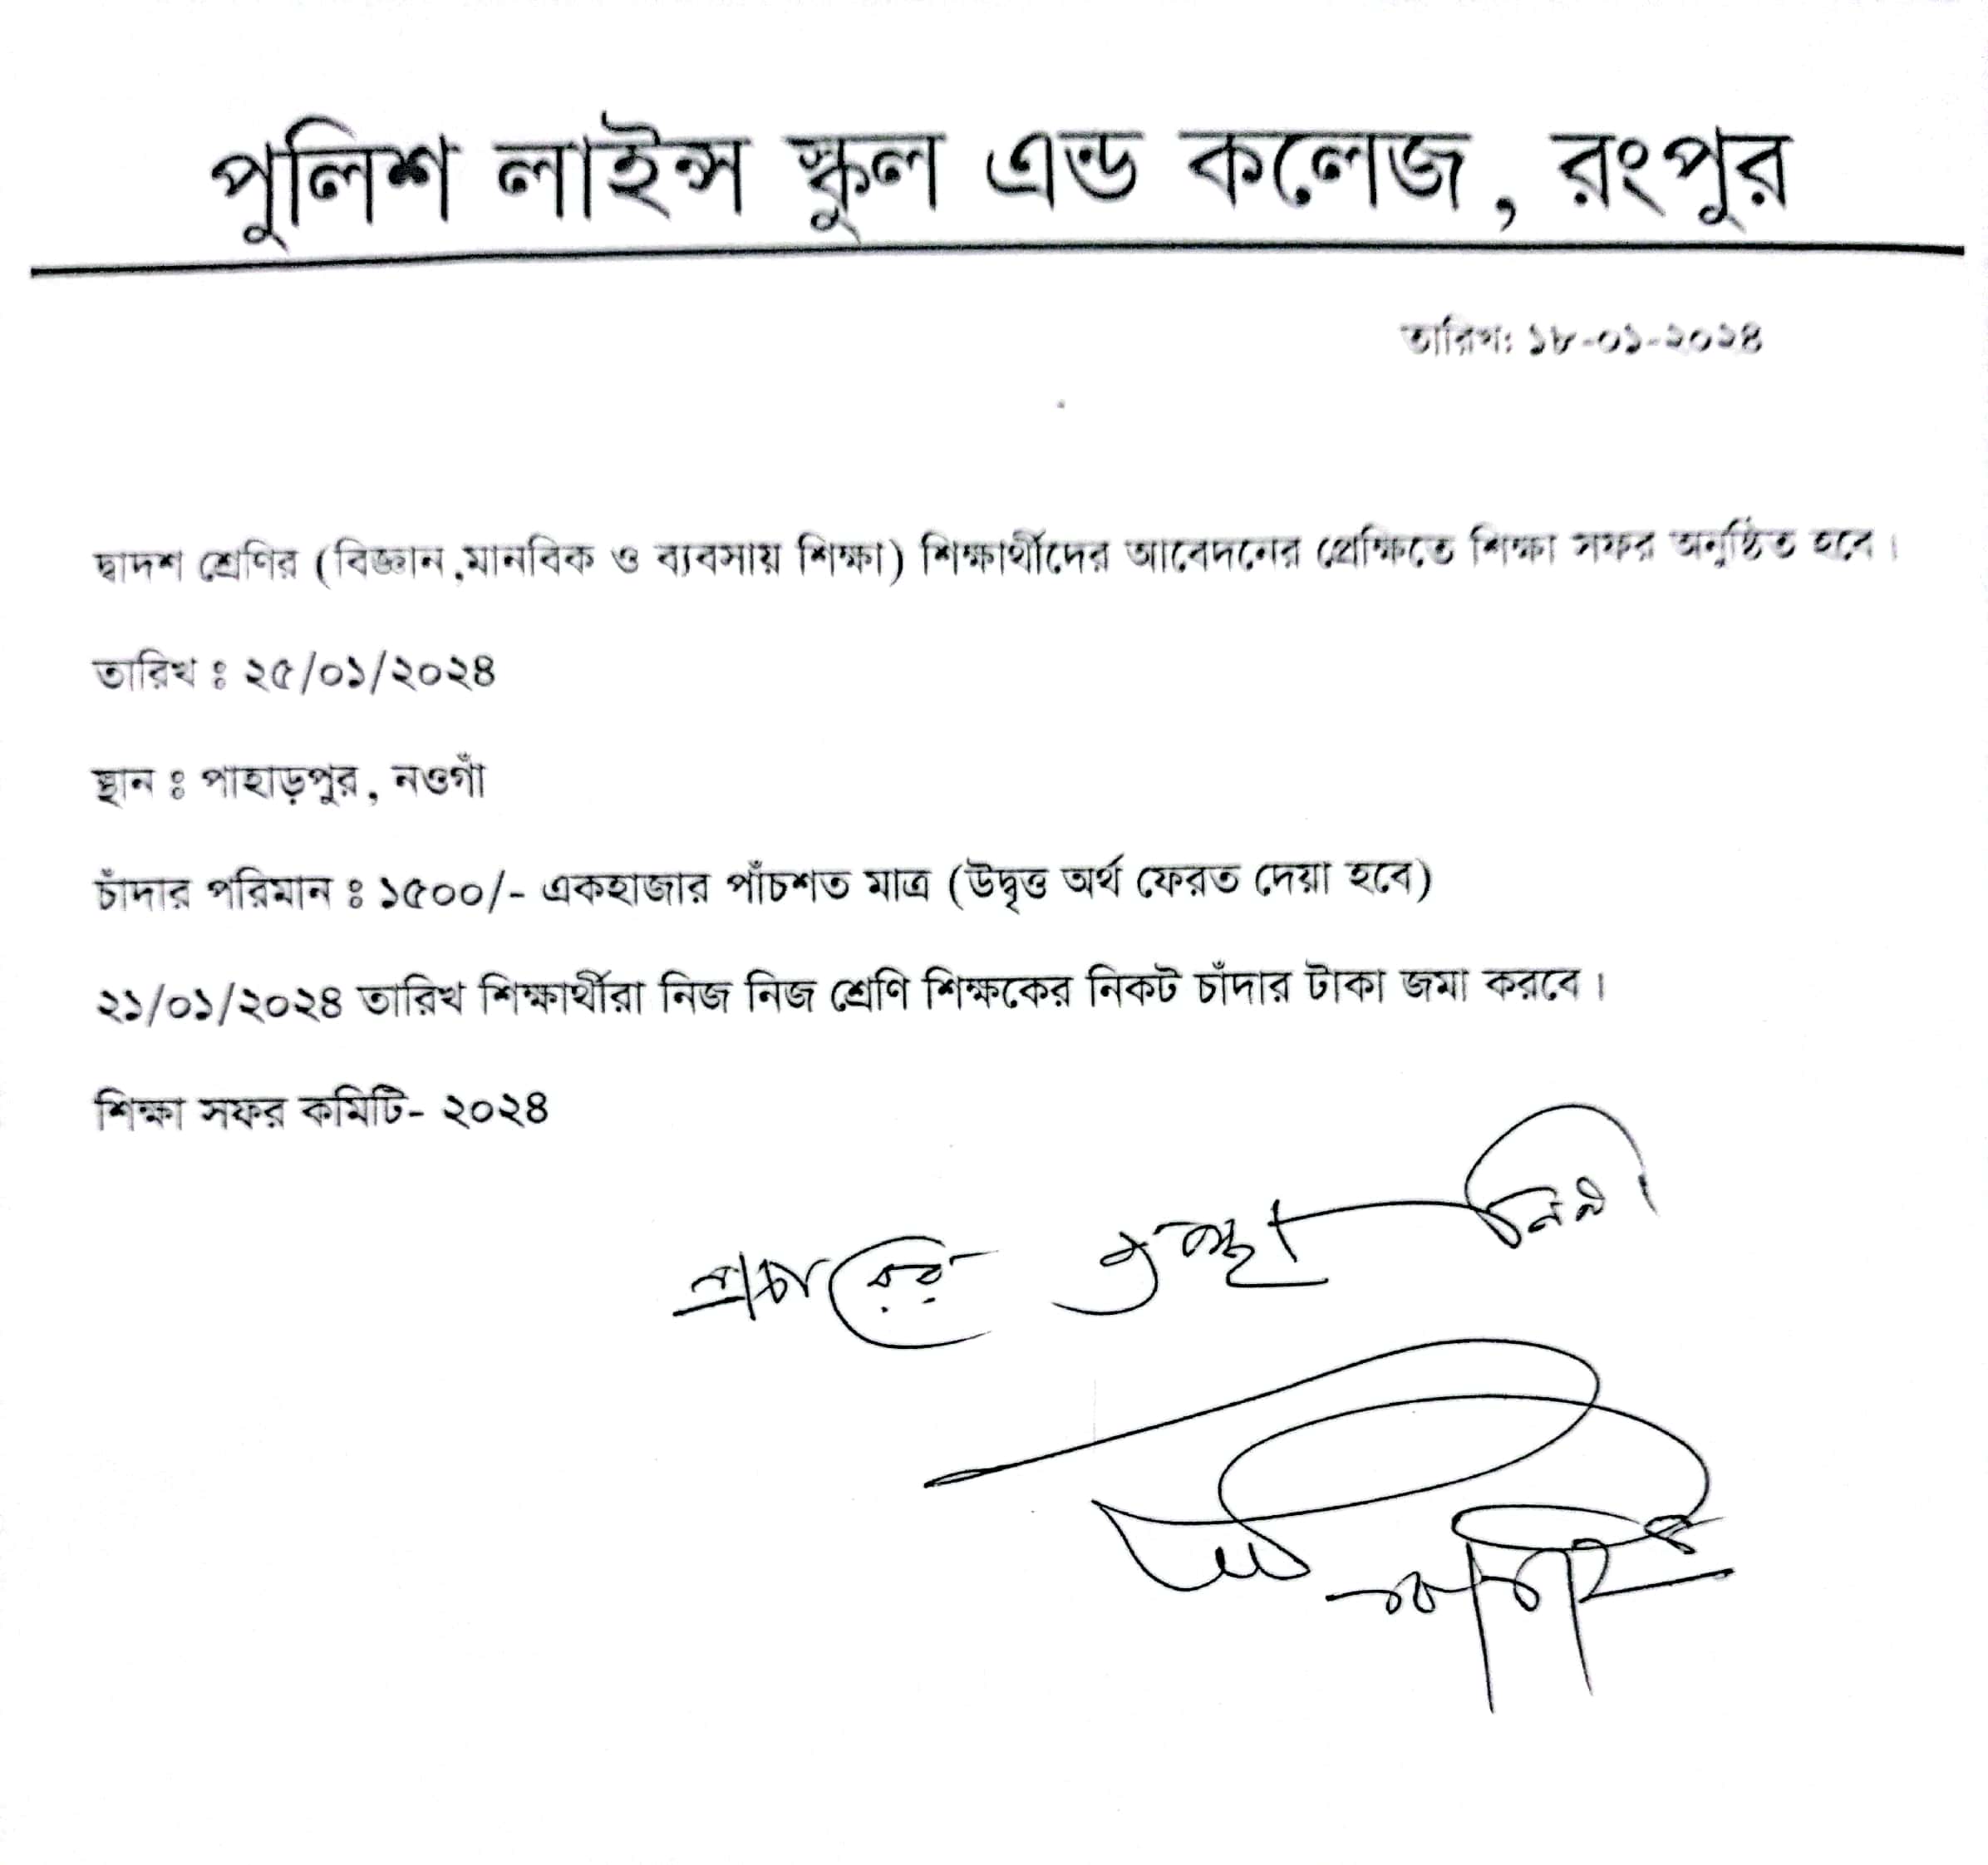 পুলিশ লাইন্স স্কুল এন্ড কলেজ, রংপুর
তারিখ: ১৮-০১-২০২৪
দ্বাদশ শ্রেণির (বিজ্ঞান,মানবিক ও ব্যবসায় শিক্ষা) শিক্ষার্থীদের আবেদনের প্রেক্ষিতে শিক্ষা সফর অনুষ্ঠিত হবে।
তারিখ ঃ ২৫/০১/২০২৪
স্থান ঃ পাহাড়পুর, নওগাঁ
চাঁদার পরিমান ঃ ১৫০০/- একহাজার পাঁচশত মাত্র (উদ্বৃত্ত অর্থ ফেরত দেয়া হবে)
২১/০১/২০২৪ তারিখ শিক্ষার্থীরা নিজ নিজ শ্রেণি শিক্ষকের নিকট চাঁদার টাকা জমা করবে।
শিক্ষা সফর কমিটি- ২০২৪